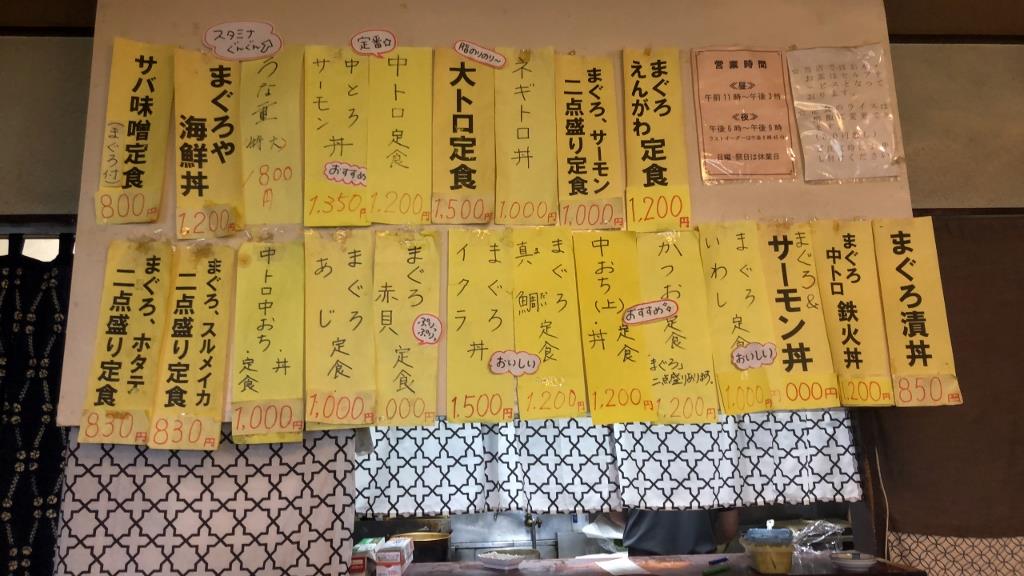 まぐろ
えんがわ 定食
1,200円
まぐろ、サーモン
二点盛り定食
1,000円
ネギトロ丼
1,000円
脂のりのり〜
大トロ定食
1,500円
定番☆
中トロ定食
1,200円
中とろ
サーモン丼
おすすめ
1,350円
スタミナ
ぐんぐん
うな重
特大
1,800
円
まぐろや
海鮮丼
1,200円
サバ味噌定食
(まぐろ付)
800円
営業時間
≪昼≫
午前11時〜午後3時
≪夜≫
日曜・祭日は休業日
まぐろ漬丼
850円
まぐろ
中トロ 鉄火丼
200円
まぐろ&
サーモン丼
000円
まぐろ
いわし 定食
おいしい
1,000円
かつお定食
おすすめ
まぐろ
二点盛りあります。
1,200円
中おち(上)・丼
定食
1,200円
まぐろ
真鯛 定食
おいしい
1,200円
まぐろ
イクラ 丼
1,500円
まぐろ
赤貝 定食
ぷりっ
ぷりっ
,000円
まぐろ
あじ 定食
1,000円
中トロ中おち・丼
定食
1,000円
まぐろ、スルメイカ
二点盛り定食
830円
まぐろ、ホタテ
二点盛り定食
830円